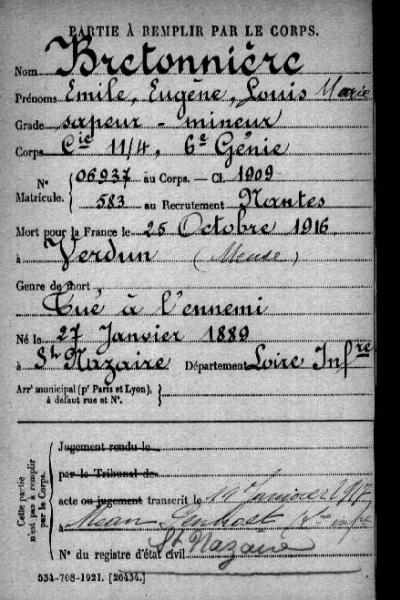 PARTIE À REMPLIR PAR LE CORPS.
Nom Bretonnière
Prénoms Emile, Eugène, Louis Marie
Grade sapeur - mineur
Corps Cie 11/4, 6e Génie
N° Matricule. { 06937 au Corps. — Cl. 1909
583 au Recrutement Nantes
Mort pour la France le 25 Octobre 1916
à Verdun (Meuse)
Genre de mort,
Tué à l'ennemi
Né le 27 Janvier 1889
à St Nazaire Département Loire Infre
Arrt municipal (pr Paris et Lyon), à défaut rue et N°. }
Cette partie n'est pas à remplir par le Corps.
Jugement rendu le
par le Tribunal de
acte ou jugement transcrit le Janvier 1917
à Méan
St Nazaire
N° du registre d'état civil
534-708-1921. [26434.]